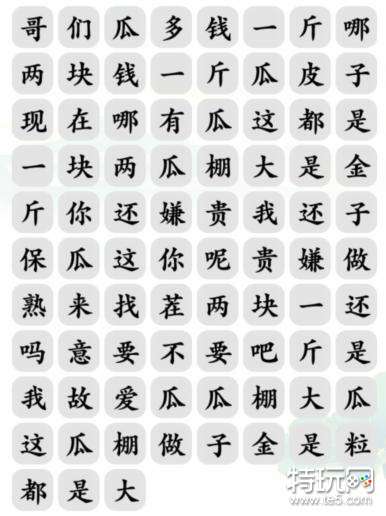 哥们瓜多钱一斤哪
两块钱一斤瓜皮子
现在哪有瓜这都是
一块两瓜棚大是金
斤你还嫌贵我还子
保瓜这你呢贵嫌做
熟来找茬两块一还
吗意要不要吧斤是
我故爱瓜瓜棚大瓜
这瓜棚做子金是粒
都是大
特玩网
www.te5.com